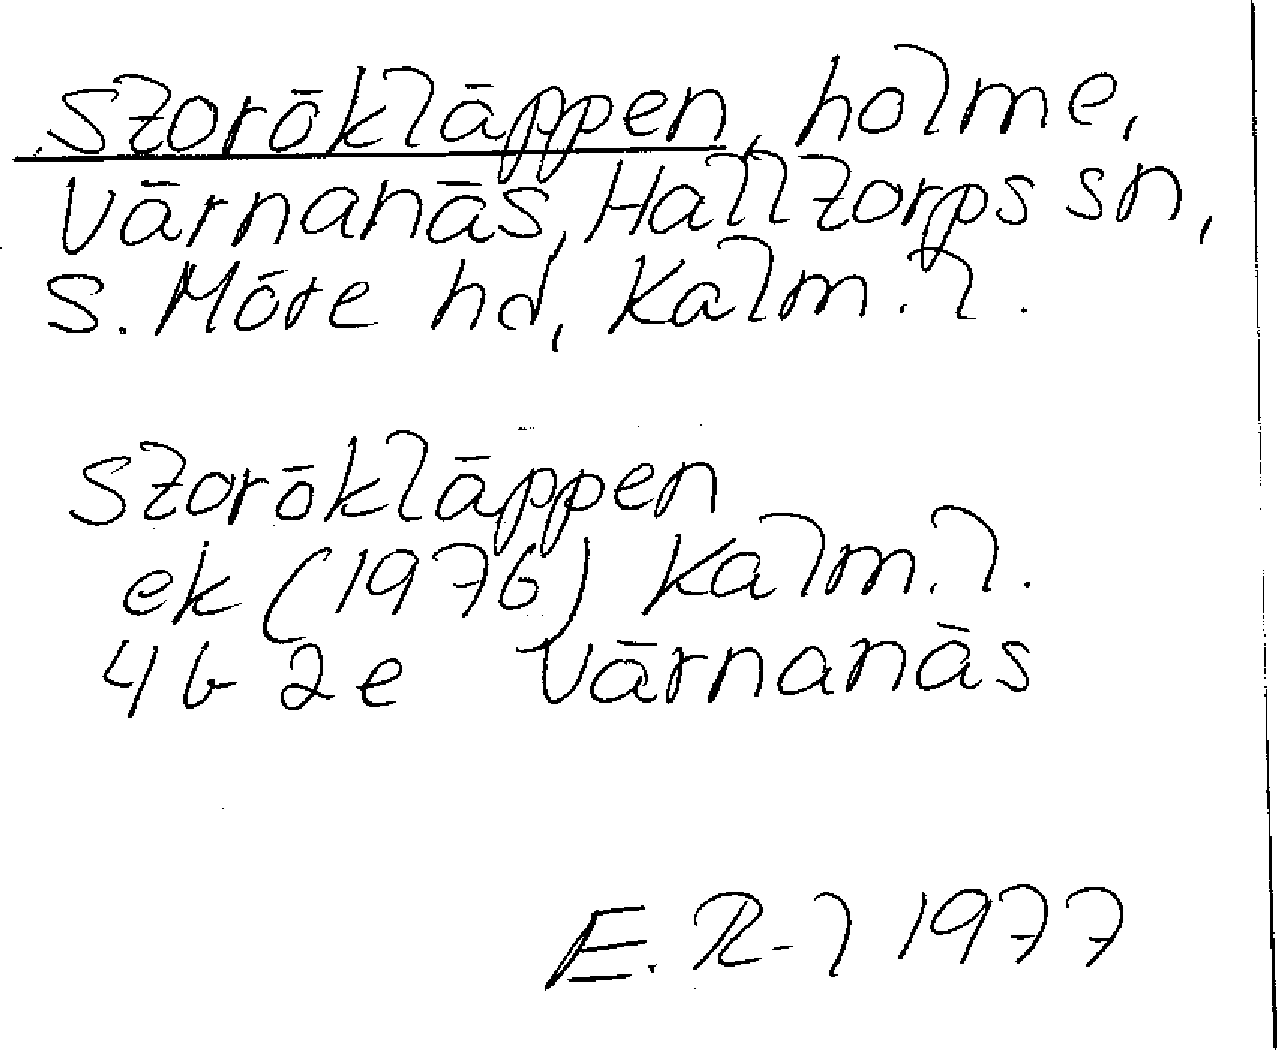 Storökläppen, holme,
Värnanäs, Halltorps sn,
S. Möre hd, Kalm. l.
Storökläppen
ek (1976) Kalm. l.
4G 2e Värnanäs
E. R-l 1977